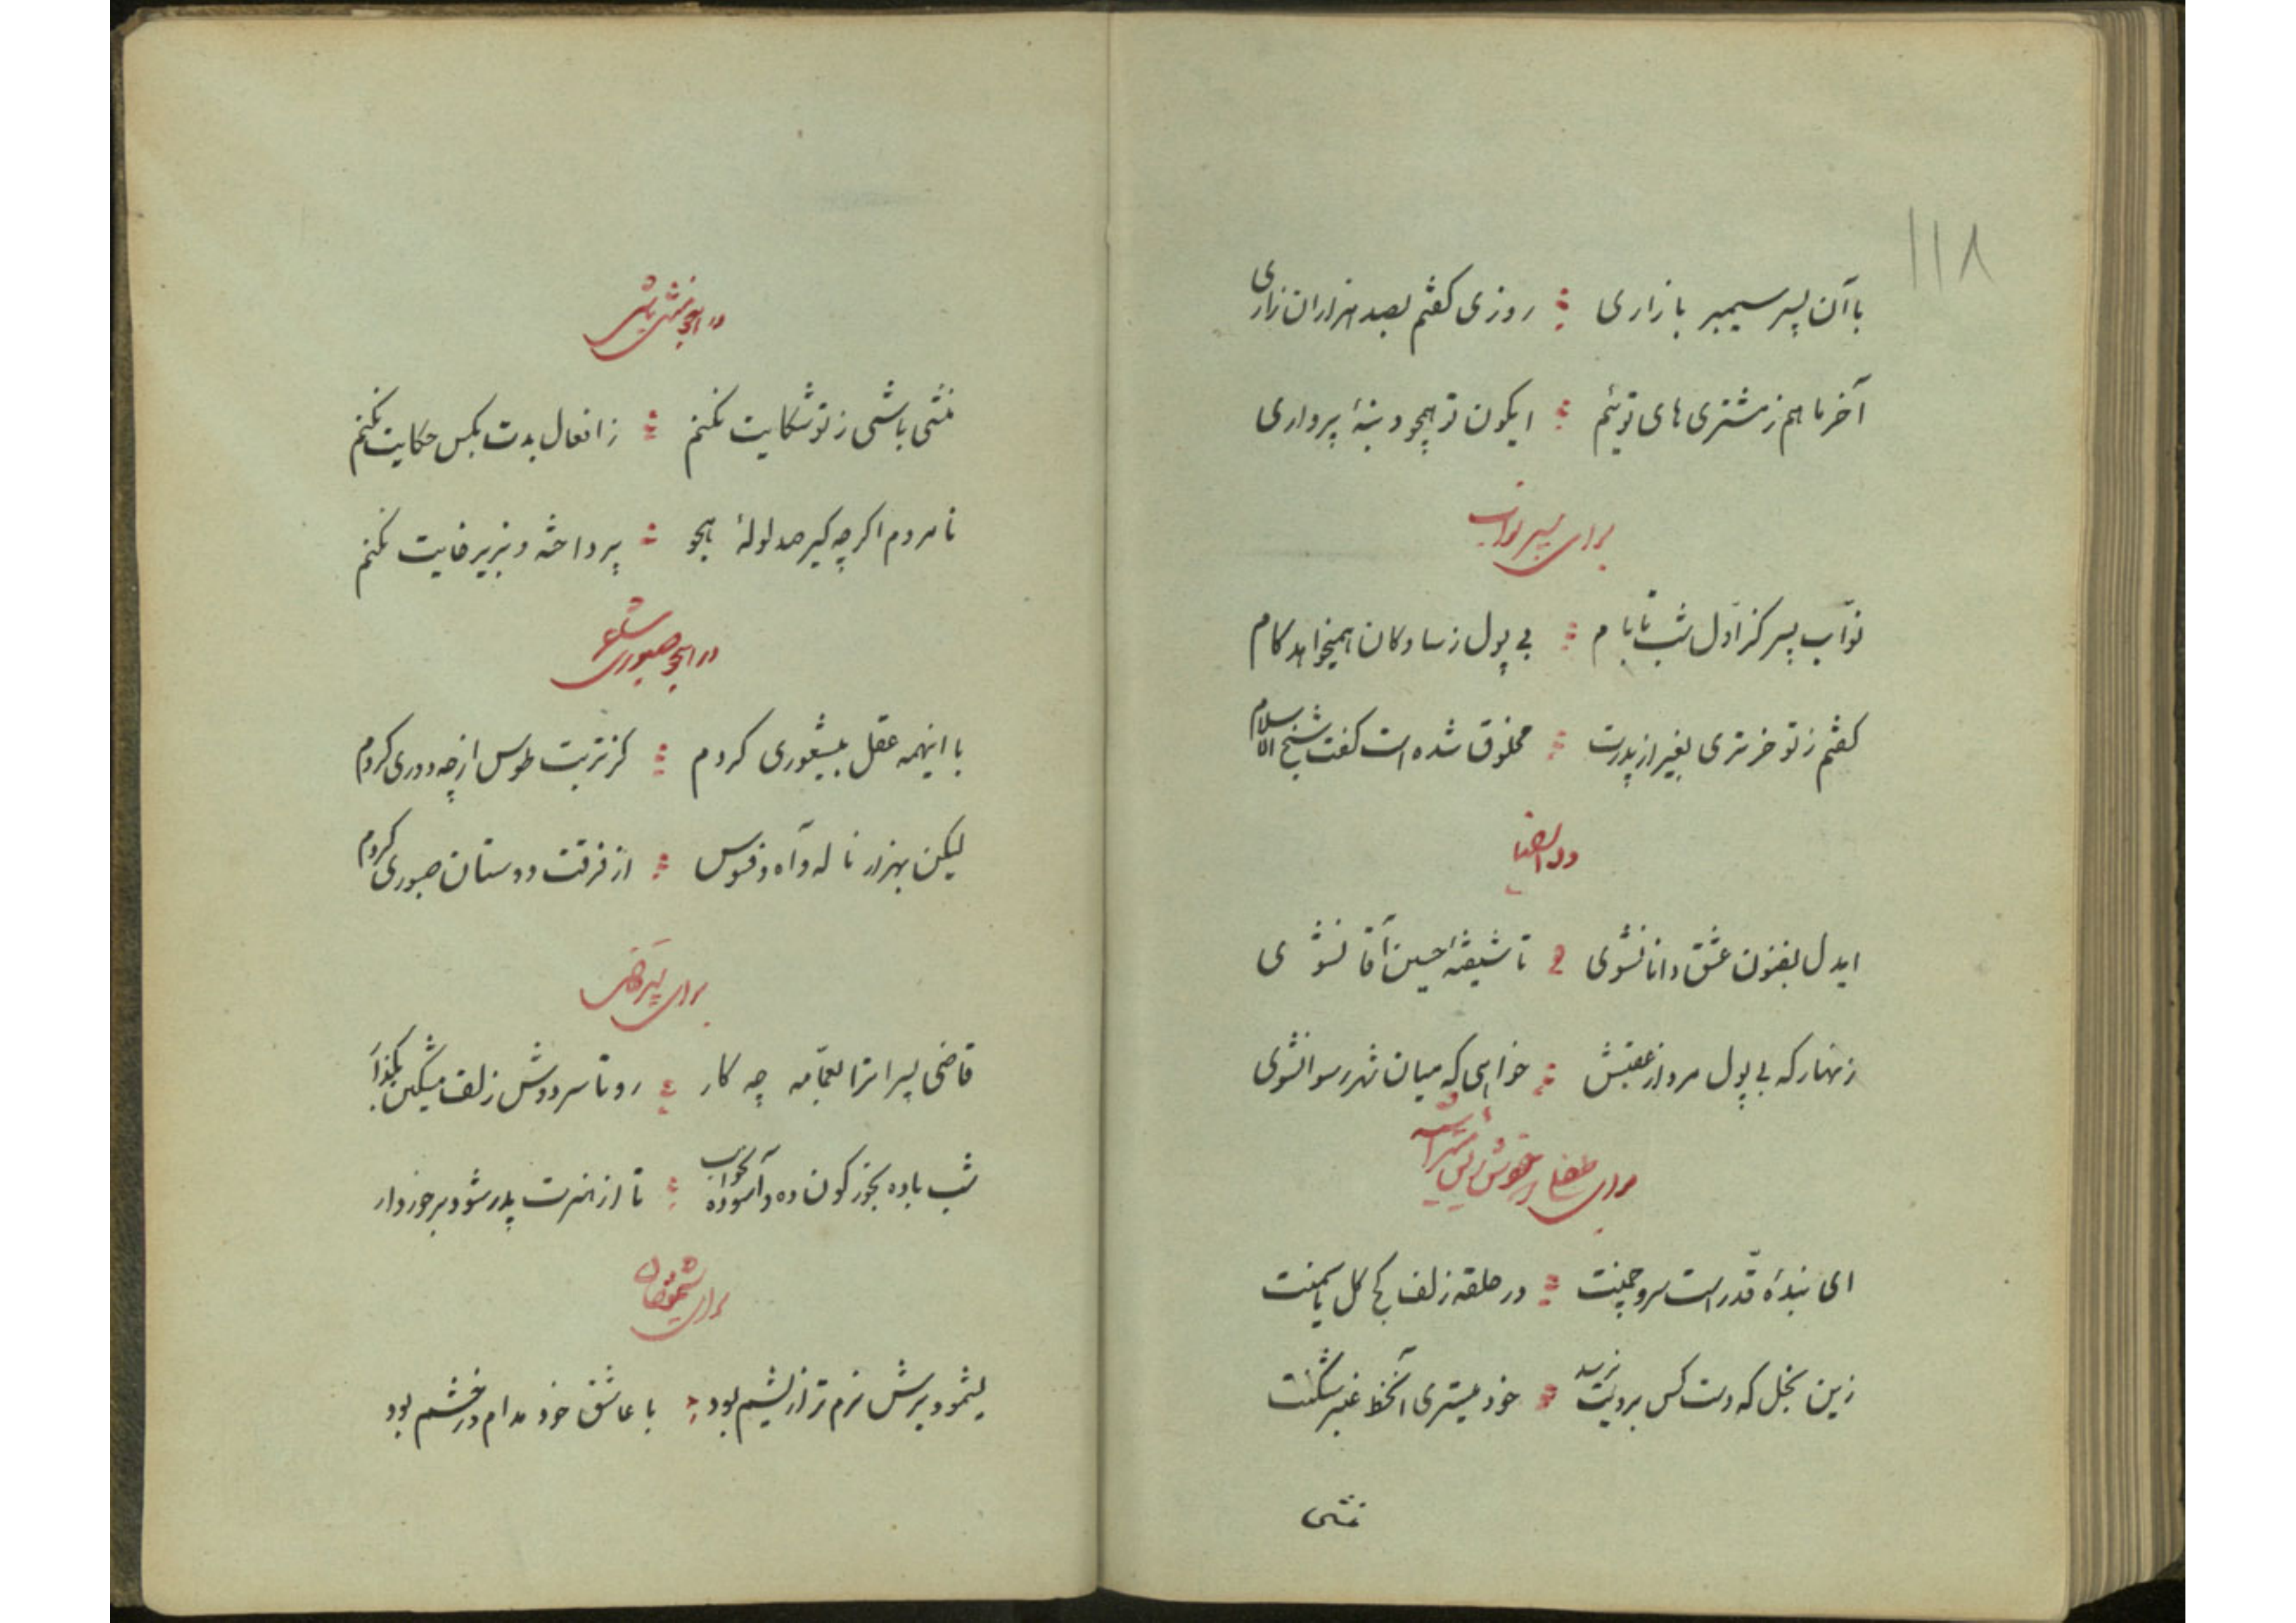 ۱۱۸
با آن پسر سیمبر بازاری روزی کفتم بصد هزاران زاری
آخر ما هم ز مشتری های توئیم ایکون تو همچو دنبهٔ پرواری
برای پسر نواب
نوّاب پسر کز اوّل شب تا بام بی پول ز سادکان همیخواهد کام
کفتم ز تو خرتری بغیر از پدرت مخلوق شده است کفت شیخ الاسلام
وله ایضا
ایدل بفنون عشق دانا نشوی تا شیفتهٔ حسین آقا نشوی
زنهار که بی پول مرو از عقبش خواهی که میان شهر رسوا نشوی
برای
ای بندهٔ قد راست سرو چمنت در حلقه زلف کج کل یاسمنت
زین بخل که دست کس بردیت نرسد خود میستری آنخط عنبر شکنت
منشی
در هجو منشی باشی
منشی باشی ز تو شکایت نکنم ز افعال بدت بکس حکایت نکنم
نامردم اکر چه کیر صد لولهٔ هجو پرداخته و بزیر خایت نکنم
در هجو صبوری
با اینهمه عقل بیشعوری کردم کز تربت طوس از چه دوری کردم
لیکن بهزار ناله و آه و فسوس از فرقت دوستان صبوری کردم
برای پسر قاضی
قاضی پسرا ترا بعمّامه چه کار رو تا سر دوش زلف مشکین بکذار
شب باده بخور کون ده و آسوده بخواب تا از هنرت پدر شود برخوردار
برای
یشمو دبرش نرم تر از پشم بود با عاشق خود مدام در خشم بود